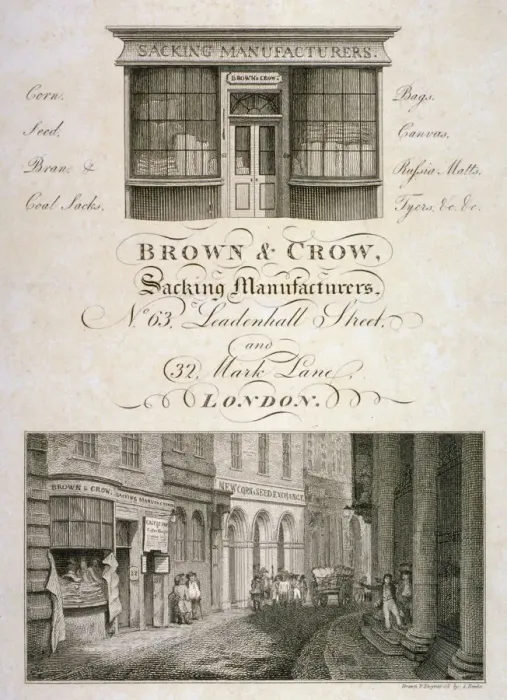 SACKING MANUFACTURERS.
BROWN & CROW.
Corn.
Seed.
Bran. &
Coal Sacks.
Bags.
Canvas.
Russia Matts.
Tyers, &c. &c.
BROWN & CROW,
Sacking Manufacturers,
No. 63, Leadenhall Street,
and
32, Mark Lane,
LONDON.
BROWN & CROW, SACKING MANUFACTURERS
NEW CORN & SEED EXCHANGE